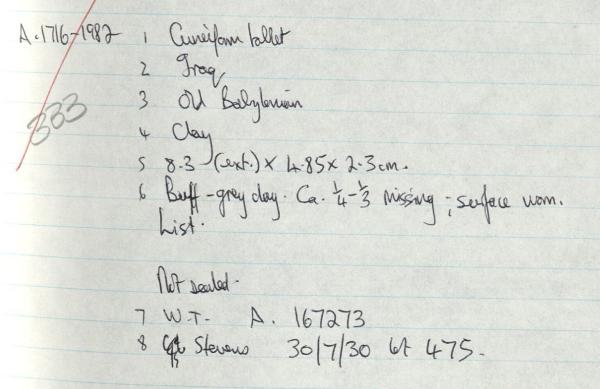 A.1716-1982 1 Cuneiform tablet
2 Iraq
3 Old Babylonian
333
4 Clay
5 8.3 (ext.) × 4.85 × 2.3 cm.
6 Buff-grey clay. Ca. 1/4-1/3 missing; surface worn.
List.
Not sealed.
7 W.T. A. 167273
8 Stevens 30/7/30 lot 475.